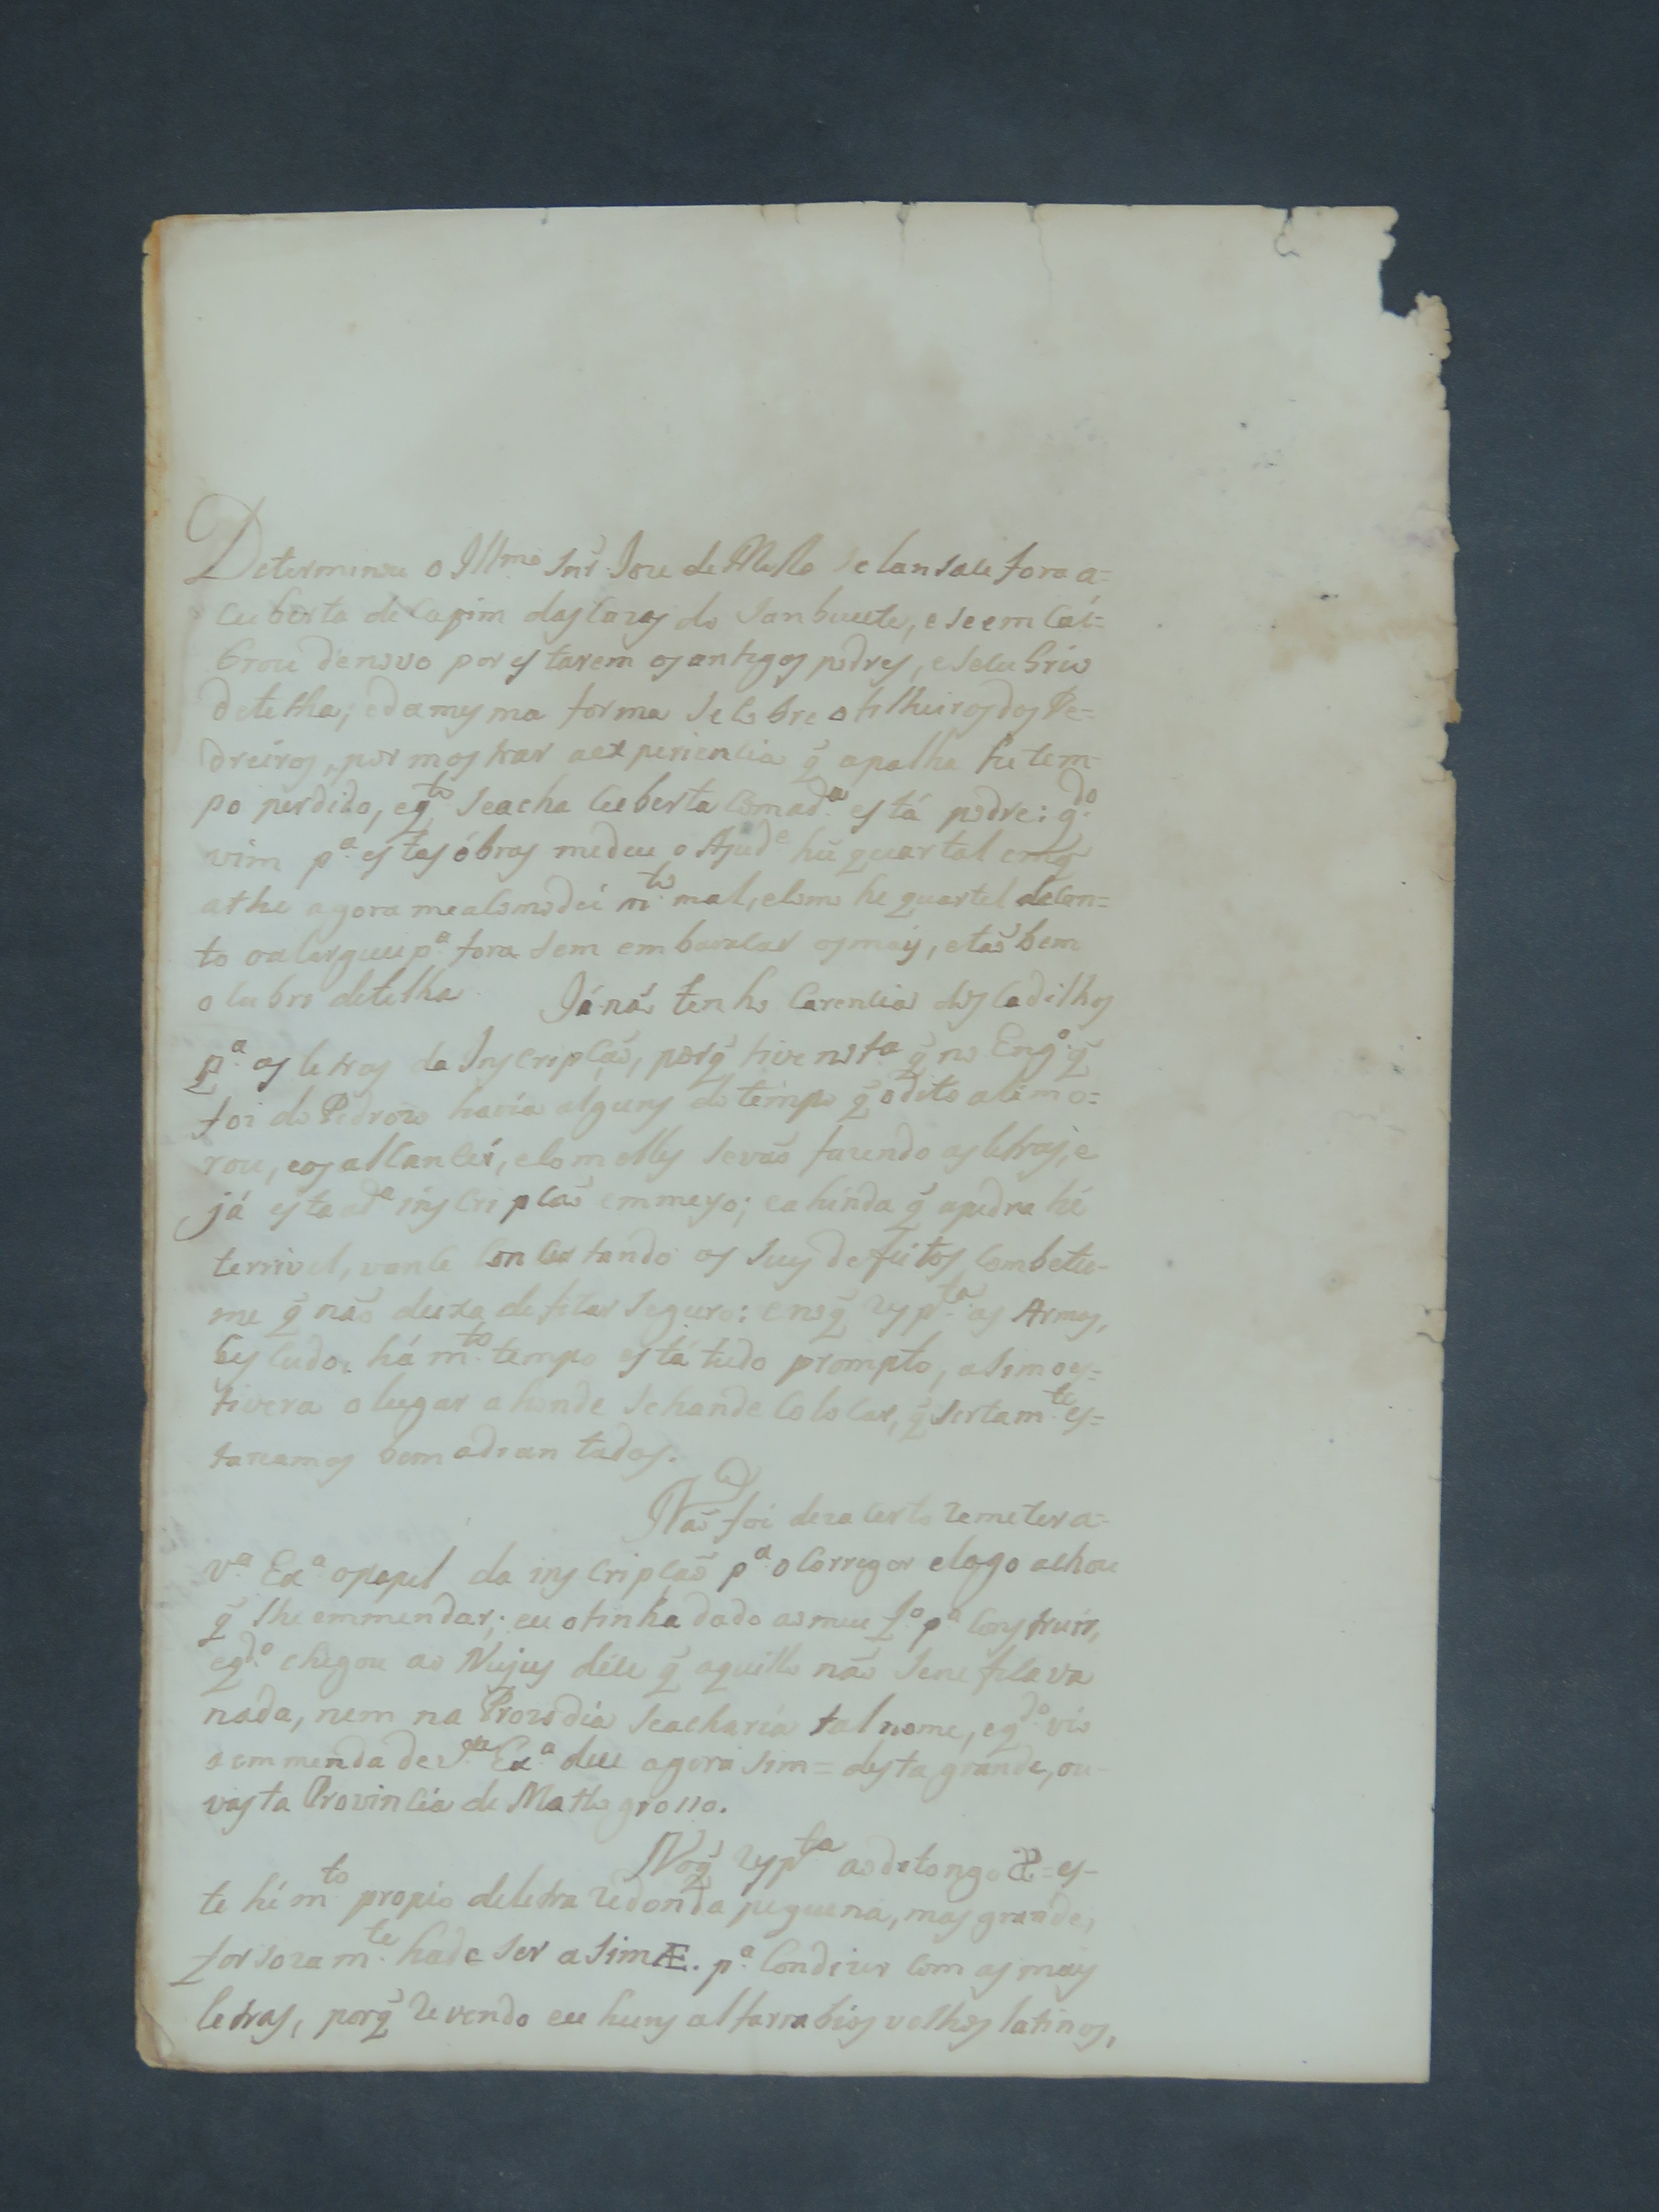 Determinou o Ill.mo Snr. Joze de Mello se lansace fora a=
cuberta de capim das cazas do Sanbuute, e se em cai=
brou denovo por estarem os antigos podres, e se cubrio
detelha; e da mesma forma se cobre o tilheiro dos Pe=
dreiros, por mostrar a experiencia q̃ apalha he tem-
po perdido, e q.to seacha cuberta com a d.a está podre: q.do
vim p.a estas óbras medeu o Ajud.e hũ quartal em q̃
athe agora me acomodei m.to mal, e como he quartel de con=
to o alarguei p.a fora sem embaracar os mais, e taõ bem
o cubro detelha Já naõ tenho carencia dos cadilhos
p.a as letras da Inscripçaõ, porq̃ tive nota q̃ no Eng.o q̃
foi do Pedrozo havia alguns do tempo q̃ o dito ali mo=
rou, e os alcancei, e com elles se vaõ fazendo as letras, e
já esta a d.a inscripcaõ em meyo; e ahinda q̃ apedra hé
terrivel, vance concertando os seus defeitos com betu-
me q̃ naõ deixa de ficar seguro: e no q̃ resp.ta as Armas,
Escudo, há m.to tempo está tudo prompto, asim es=
tivera o lugar ahonde se hande colocar, q̃ sertam.te es=
tariamos bem adiantados.
Naõ foi dezacerto remeter a=
V.a Ex.a o papel da inscripcaõ p.a o corregor e logo achou
q̃ lhe emmendar; eu o tinha dado ao meu f.o p.a construir,
e q.do chegou ao dice q̃ aquillo naõ seneficava
nada, nem na Prozodia seacharia tal nome, e q.do vio
a emmenda de V.a Ex.a dice agora sim = desta grande, ou-
vasta Provincia de Matto grosso.
No q̃ resp.ta ao ditongo æ = es-
te hé m.to propio deletra redonda piquena, mas grande,
forsozam.te hade ser asim Æ. p.a condizer com as mais
letras, porq̃ revendo eu huns alfarrabios velhos latinos,